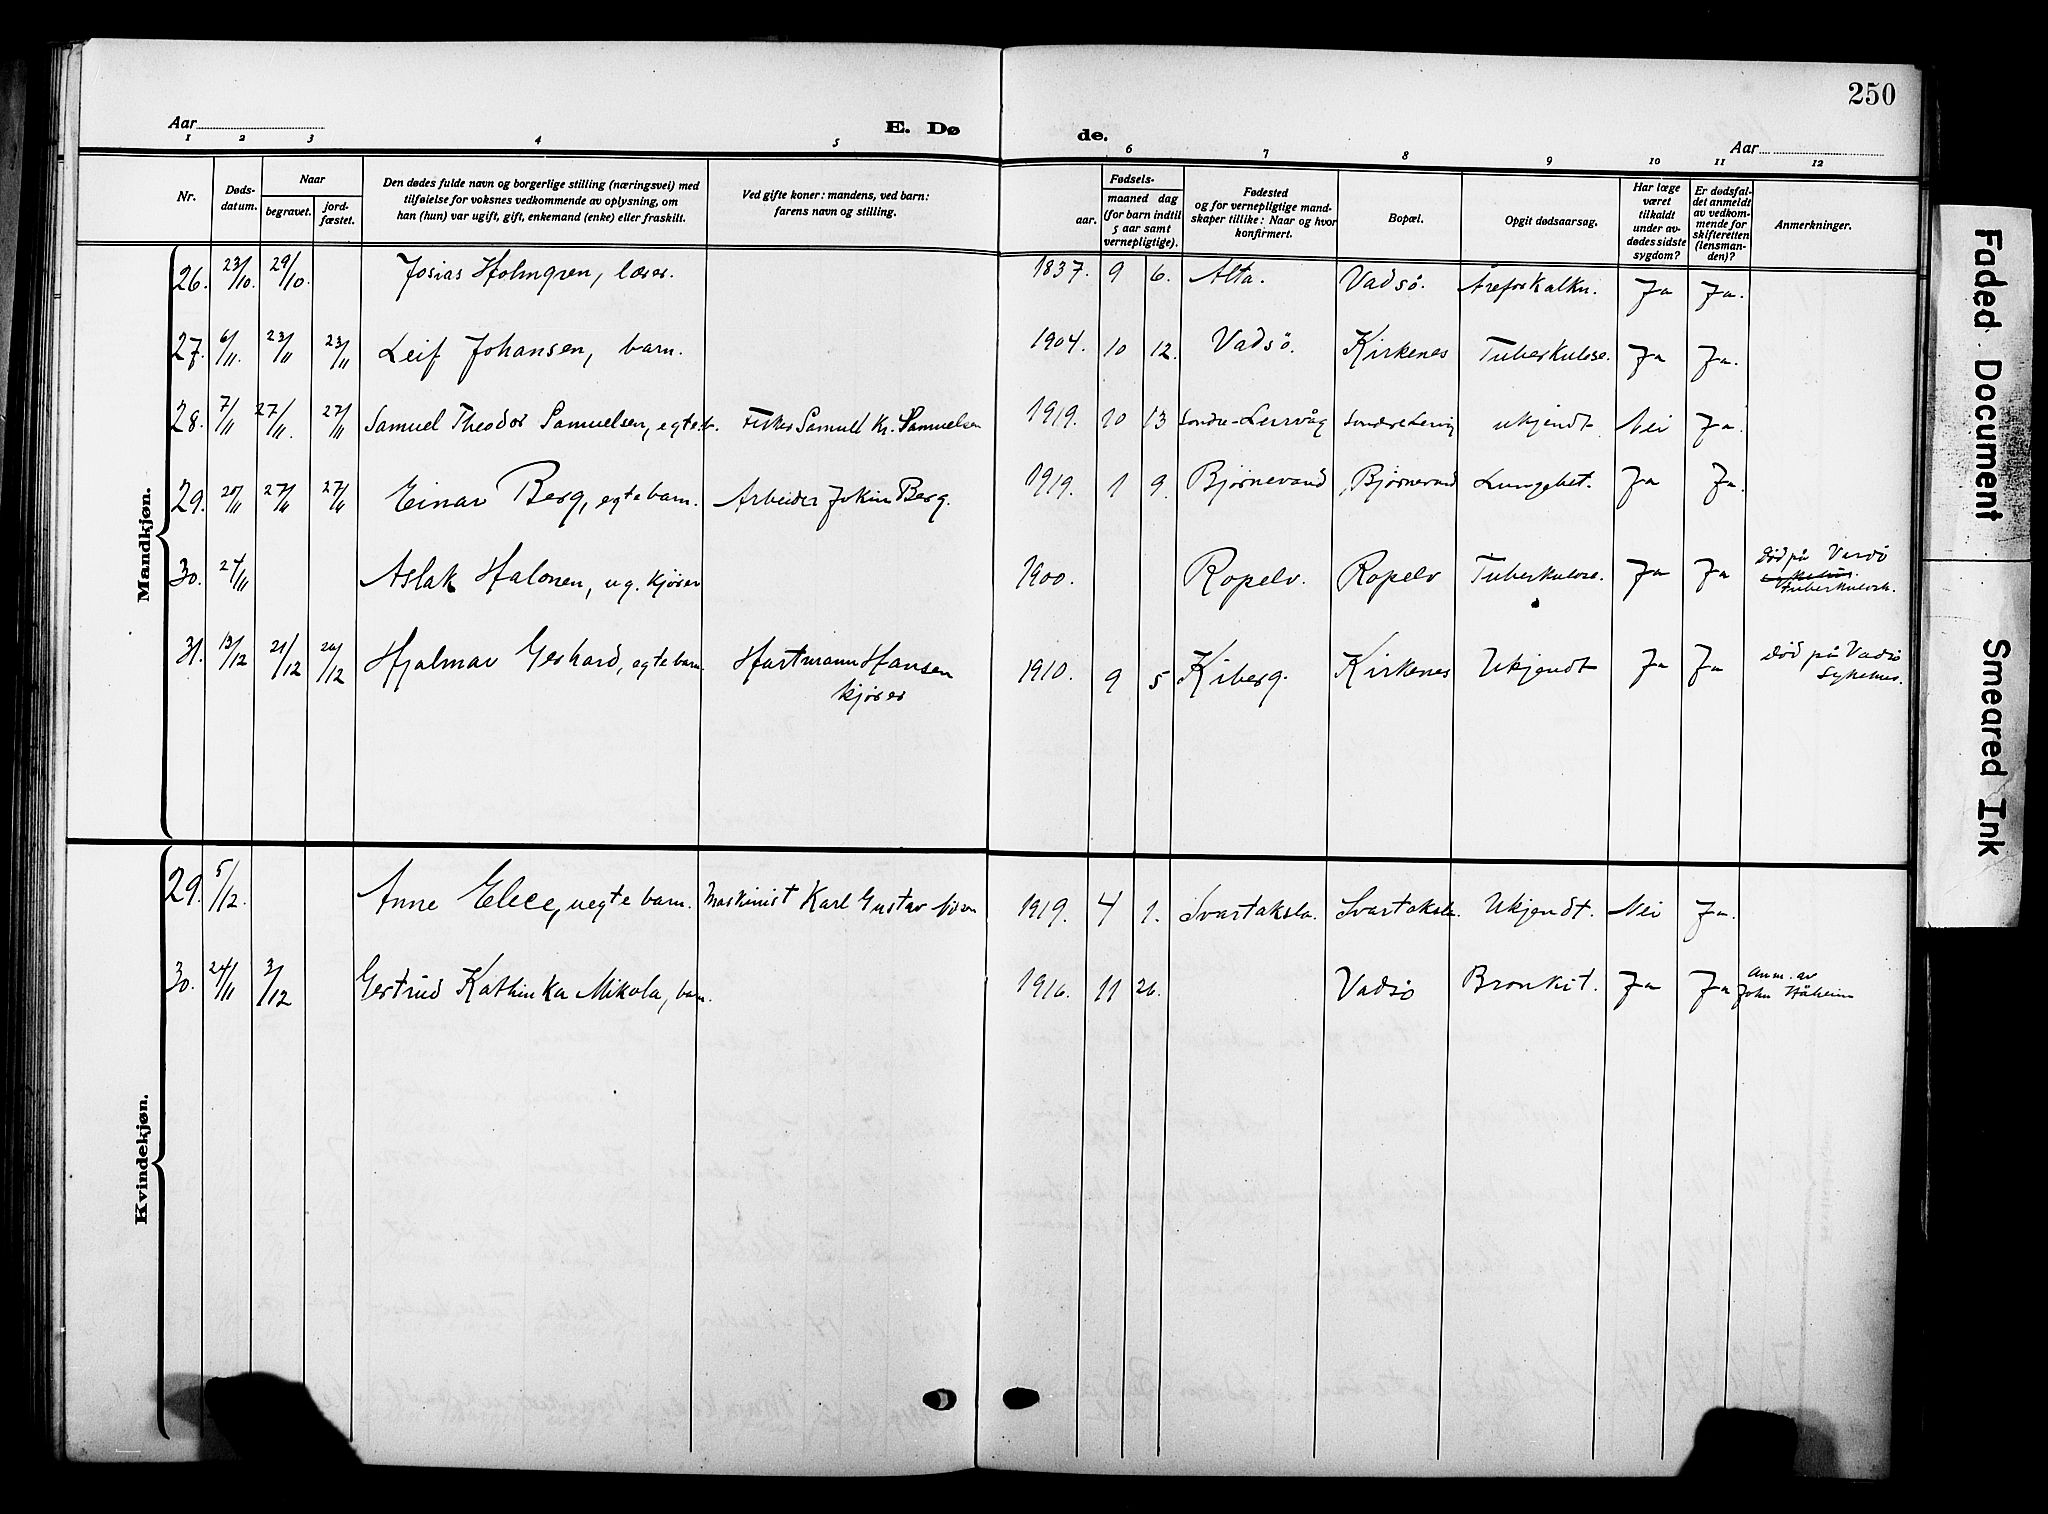 250
Aar
E. Dø
de.
Aar
1 2 3 4 5 6 7 8 9 10 11 12
Nr.
Døds-
datum.
Naar
begravet.
jord-
fæstet.
Den dødes fulde navn og borgerlige stilling (næringsvei) med
tilføielse for voksnes vedkommende av oplysning, om
han (hun) var ugift, gift, enkemand (enke) eller fraskilt.
Ved gifte koner: mandens, ved barn:
farens navn og stilling.
Fødsels-
aar.
maaned dag
(for barn indtil
5 aar samt
vernepligtige).
Fødested
og for vernepligtige mand-
skaper tillike: Naar og hvor
konfirmert.
Bopæl.
Opgit dødsaarsag.
Har læge
været
tilkaldt
under av-
dødes sidste
sygdom?
Er dødsfal-
det anmeldt
av vedkom-
mende for
skifteretten
(lensman-
den)?
Anmerkninger.
Mandkjøn.
26. 23/10. 29/10. Josias Holmgren, læser. 1837. 9 6. Alta. Vadsø. Åreforkalkn. Ja Ja.
27. 6/11. 23/11 23/11 Leif Johansen, barn. 1904. 10 12. Vadsö. Kirkenes Tuberkulose. Ja Ja.
28. 7/11 27/11. 27/11 Samuel Theodor Samuelsen, egte b. Fisker Samuel Kr. Samuelsen 1919. 10 13 ukjendt Nei Ja.
29. 20/11 27/11 27/11 Einar Berg, egte barn. Arbeider Jokim Berg. 1919. 1 9. Bjørnevand Bjørnevand Lungebet. Ja Ja.
30. 27/11 Aslak Halonen, ug. kjører 1900. Ropelv. Ropelv Tuberkulose. Ja Ja død på Vardø
Tuberkulosh.
31. 13/12 21/12 20/12 Hjalmar Gerhard, egte barn. Hartmann Hansen 1910. 9 5 Kiberg. Kirkenes Ukjendt Ja Ja død på Vadsø
kjører Sykehus.
Kvindekjøn.
29. 5/12. Anne Elece, uegte barn. Maskinist Karl Gustav 1919. 4 1. Svartaksla. Svartaksla. Ukjendt. Nei Ja.
30. 24/11 3/12 Gertrud Kathinka Mikola, barn. 1916. 11 26. Vadsø Bronkit. Ja Ja Anm. av
John Håheim
Faded Document
Smeared Ink